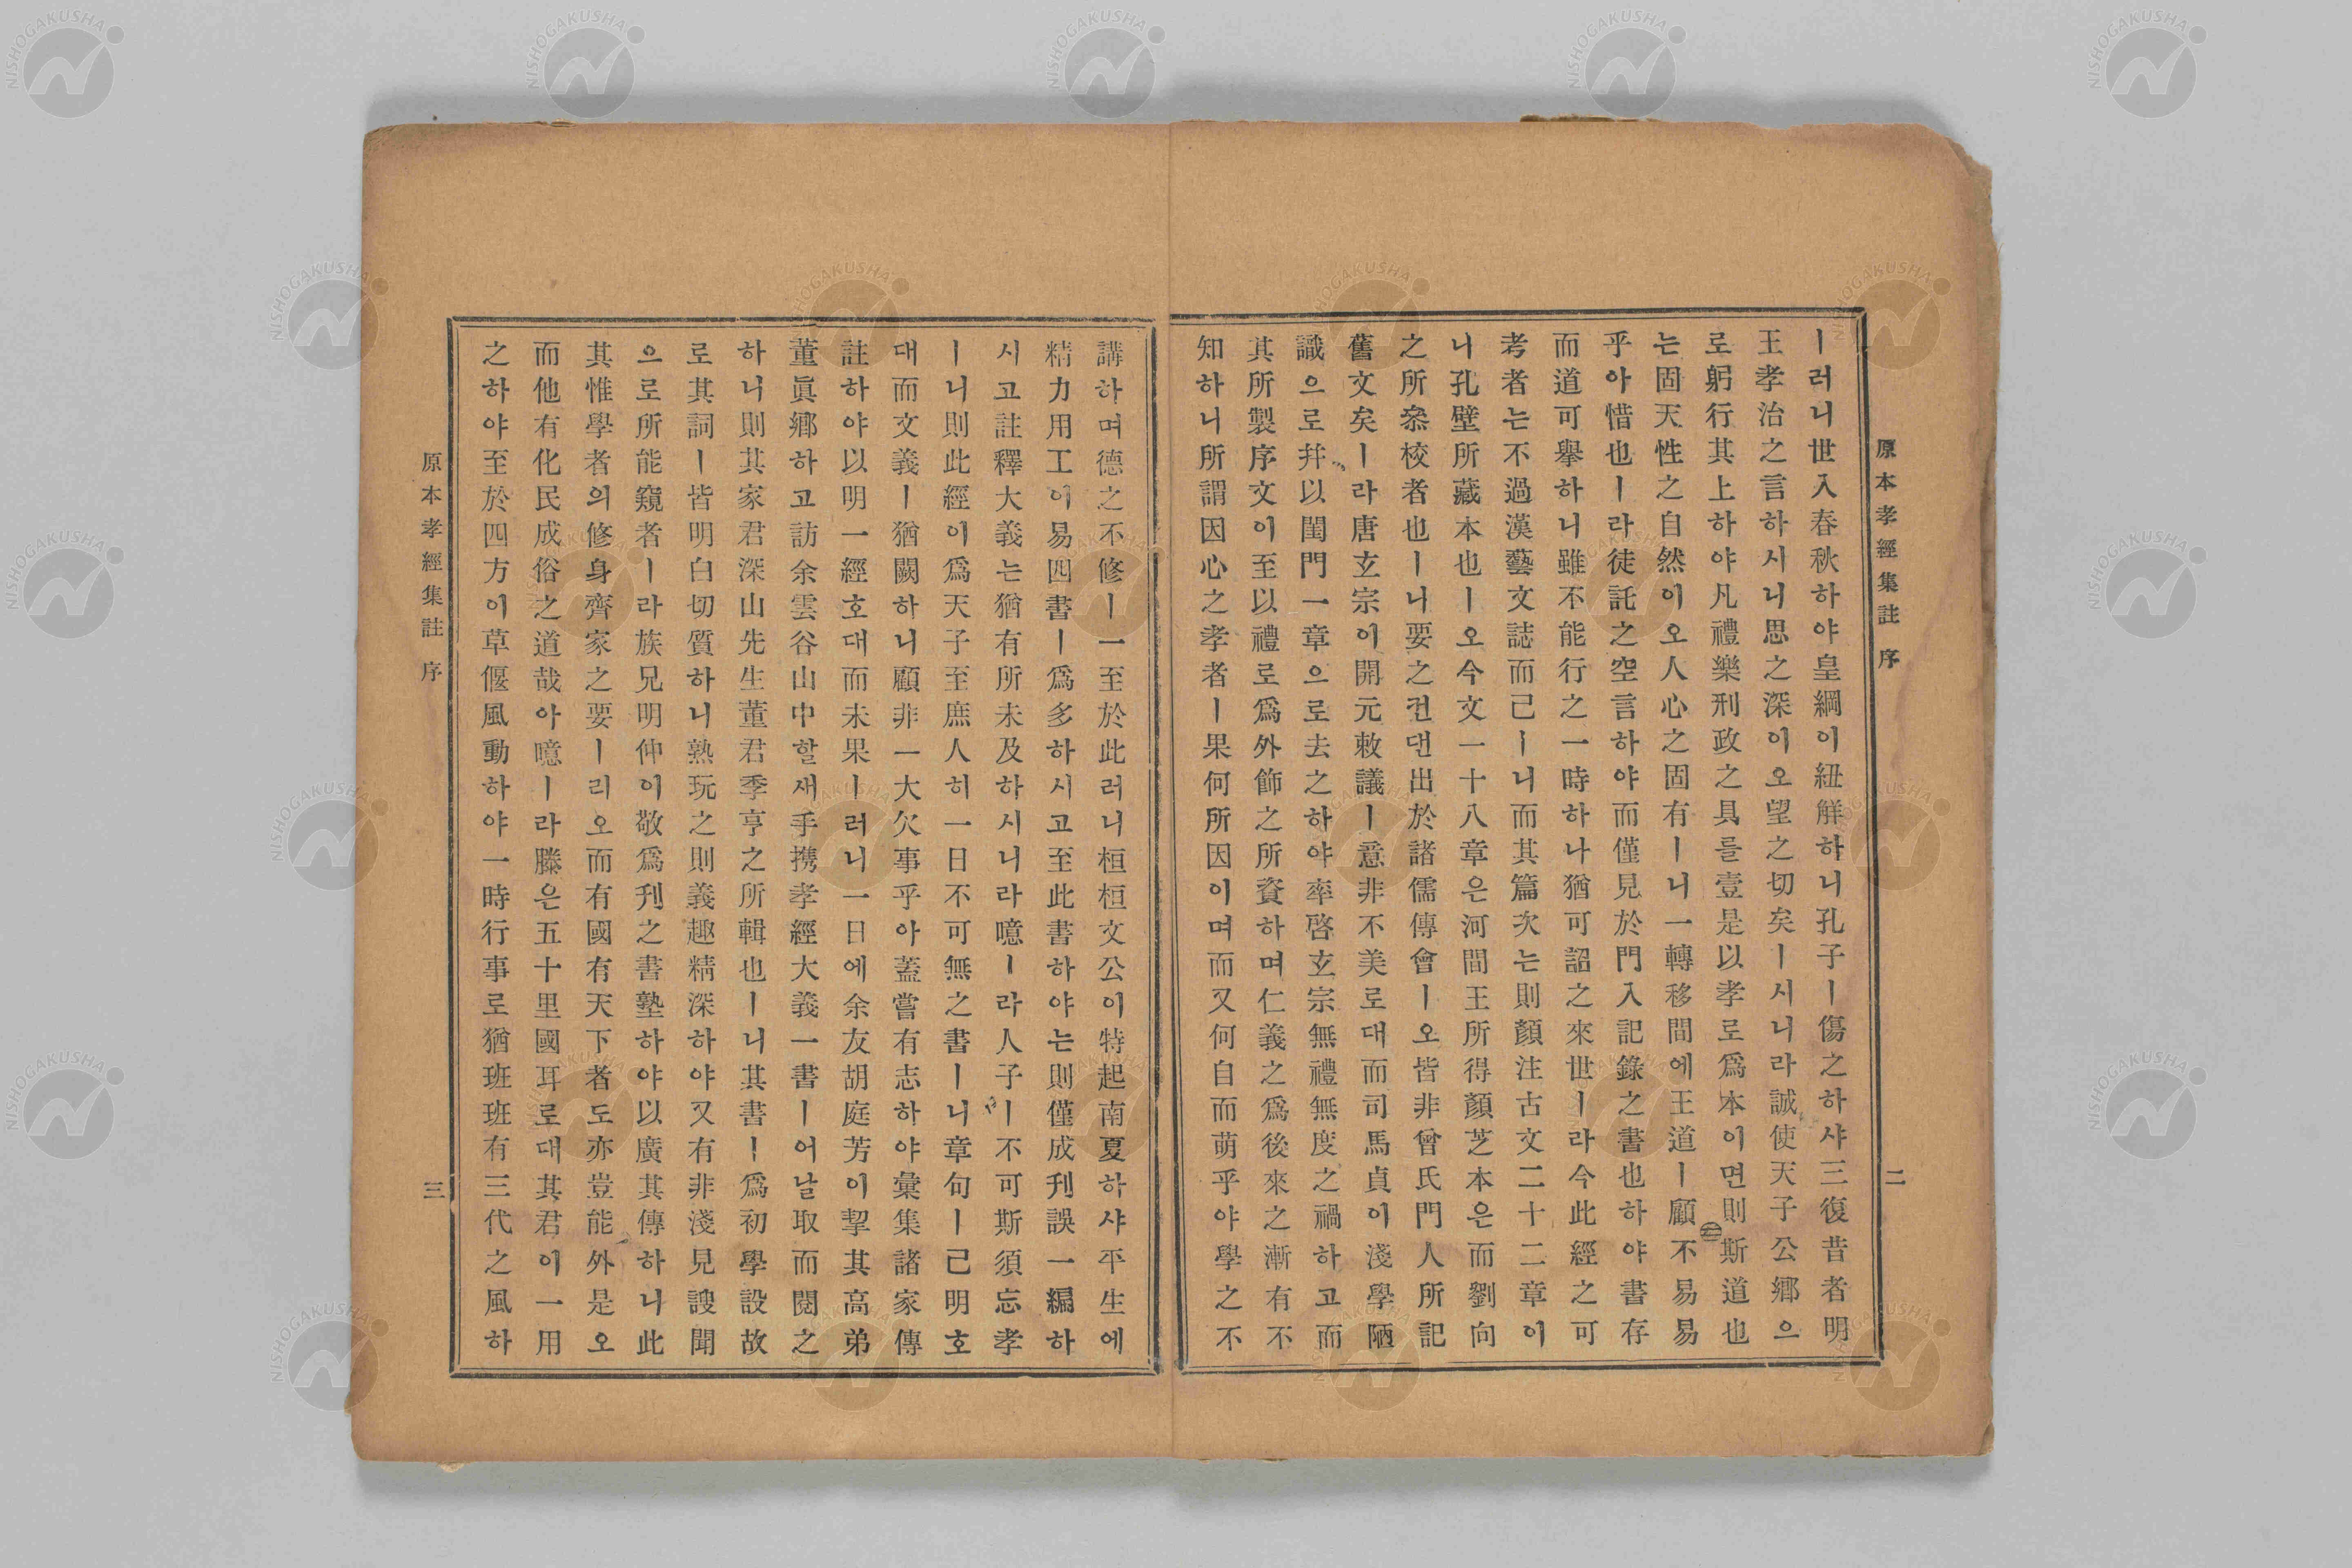 原本孝經集註 序 二
ㅣ러니世入春秋하야皇綱이紐觧하니孔子ㅣ傷之하샤三復昔者明
王孝治之言하시니思之深이오望之切矣ㅣ시니라誠使天子公鄕으
로躬行其上하야凡禮樂刑政之具를壹是以孝로爲本이면則斯道也
는固天性之自然이오人心之固有ㅣ니一轉移間에王道ㅣ顧不易易
乎아惜也ㅣ라徒託之空言하야而僅見於門入記錄之書也하야書存
而道可擧하니雖不能行之一時하나猶可詔之來世ㅣ라今此經之可
考者는不過漢藝文誌而己ㅣ니而其篇次는則顏注古文二十二章이
니孔壁所藏本也ㅣ오今文一十八章은河間王所得顏芝本은而劉向
之所叅校者也ㅣ니要之컨댄出於諸儒傳會ㅣ오皆非曾氏門人所記
舊文矣ㅣ라唐玄宗이開元敕議ㅣ意非不美로대而司馬貞이淺學陋
識으로幷以閨門一章으로去之하야率啓玄宗無禮無度之禍하고而
其所製序文이至以禮로爲外飾之所資하며仁義之爲後來之漸有不
知하니所謂因心之孝者ㅣ果何所因이며而又何自而萌乎야學之不
講하며德之不修ㅣ一至於此러니桓桓文公이特起南夏하샤平生에
精力用工이易四書ㅣ爲多하시고至此書하야는則僅成刋誤一編하
시고註釋大義는猶有所未及하시니라噫ㅣ라人子ㅣ不可斯須忘孝
ㅣ니則此經이爲天子至庶人히一日不可無之書ㅣ니章句ㅣ己明호
대而文義ㅣ猶闕하니顧非一大欠事乎아蓋嘗有志하야彙集諸家傳
註하야以明一經호대而未果ㅣ러니一日에余友胡庭芳이挈其高弟
董眞鄕하고訪余雲谷山中할새手携孝經大義一書ㅣ어날取而閱之
하니則其家君深山先生董君季亨之所輯也ㅣ니其書ㅣ爲初學設故
로其詞ㅣ皆明白切質하니熟玩之則義趣精深하야又有非淺見謏聞
으로所能窺者ㅣ라族兄明仲이敬爲刋之書塾하야以廣其傳하니此
其惟學者의修身齊家之要ㅣ리오而有國有天下者도亦豈能外是오
而他有化民成俗之道哉아噫ㅣ라滕은五十里國耳로대其君이一用
之하야至於四方이草偃風動하야一時行事로猶班班有三代之風하
原本孝經集註 序 三